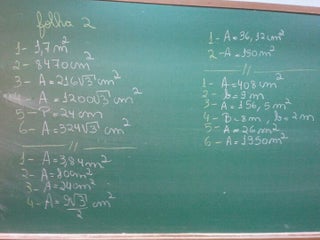 folha 2
1- 1,7m²
2- 8470cm²
3- A=216√3 cm²
- A=1200√3 cm²
5- P=24cm
6- A=324√3 cm²
//
1- A=3,84m²
2- A=80cm²
3- A=24cm²
4- A=9√3/2 cm²
1- A=36,12cm²
2- A=150m²
//
1- A=408cm²
2- b=9m
3- A=156,5m²
4- B=8m, b=2m
5- A=26m²
6- A=1950m²